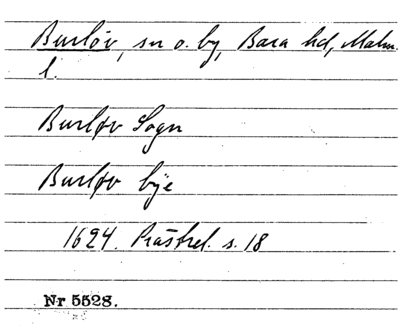 Burløv, sn o. by, Bara hd, Malm.
l.
Burløv Sogn
Burløv bÿe
1624. Prästrel. s. 18
Nr 5528.